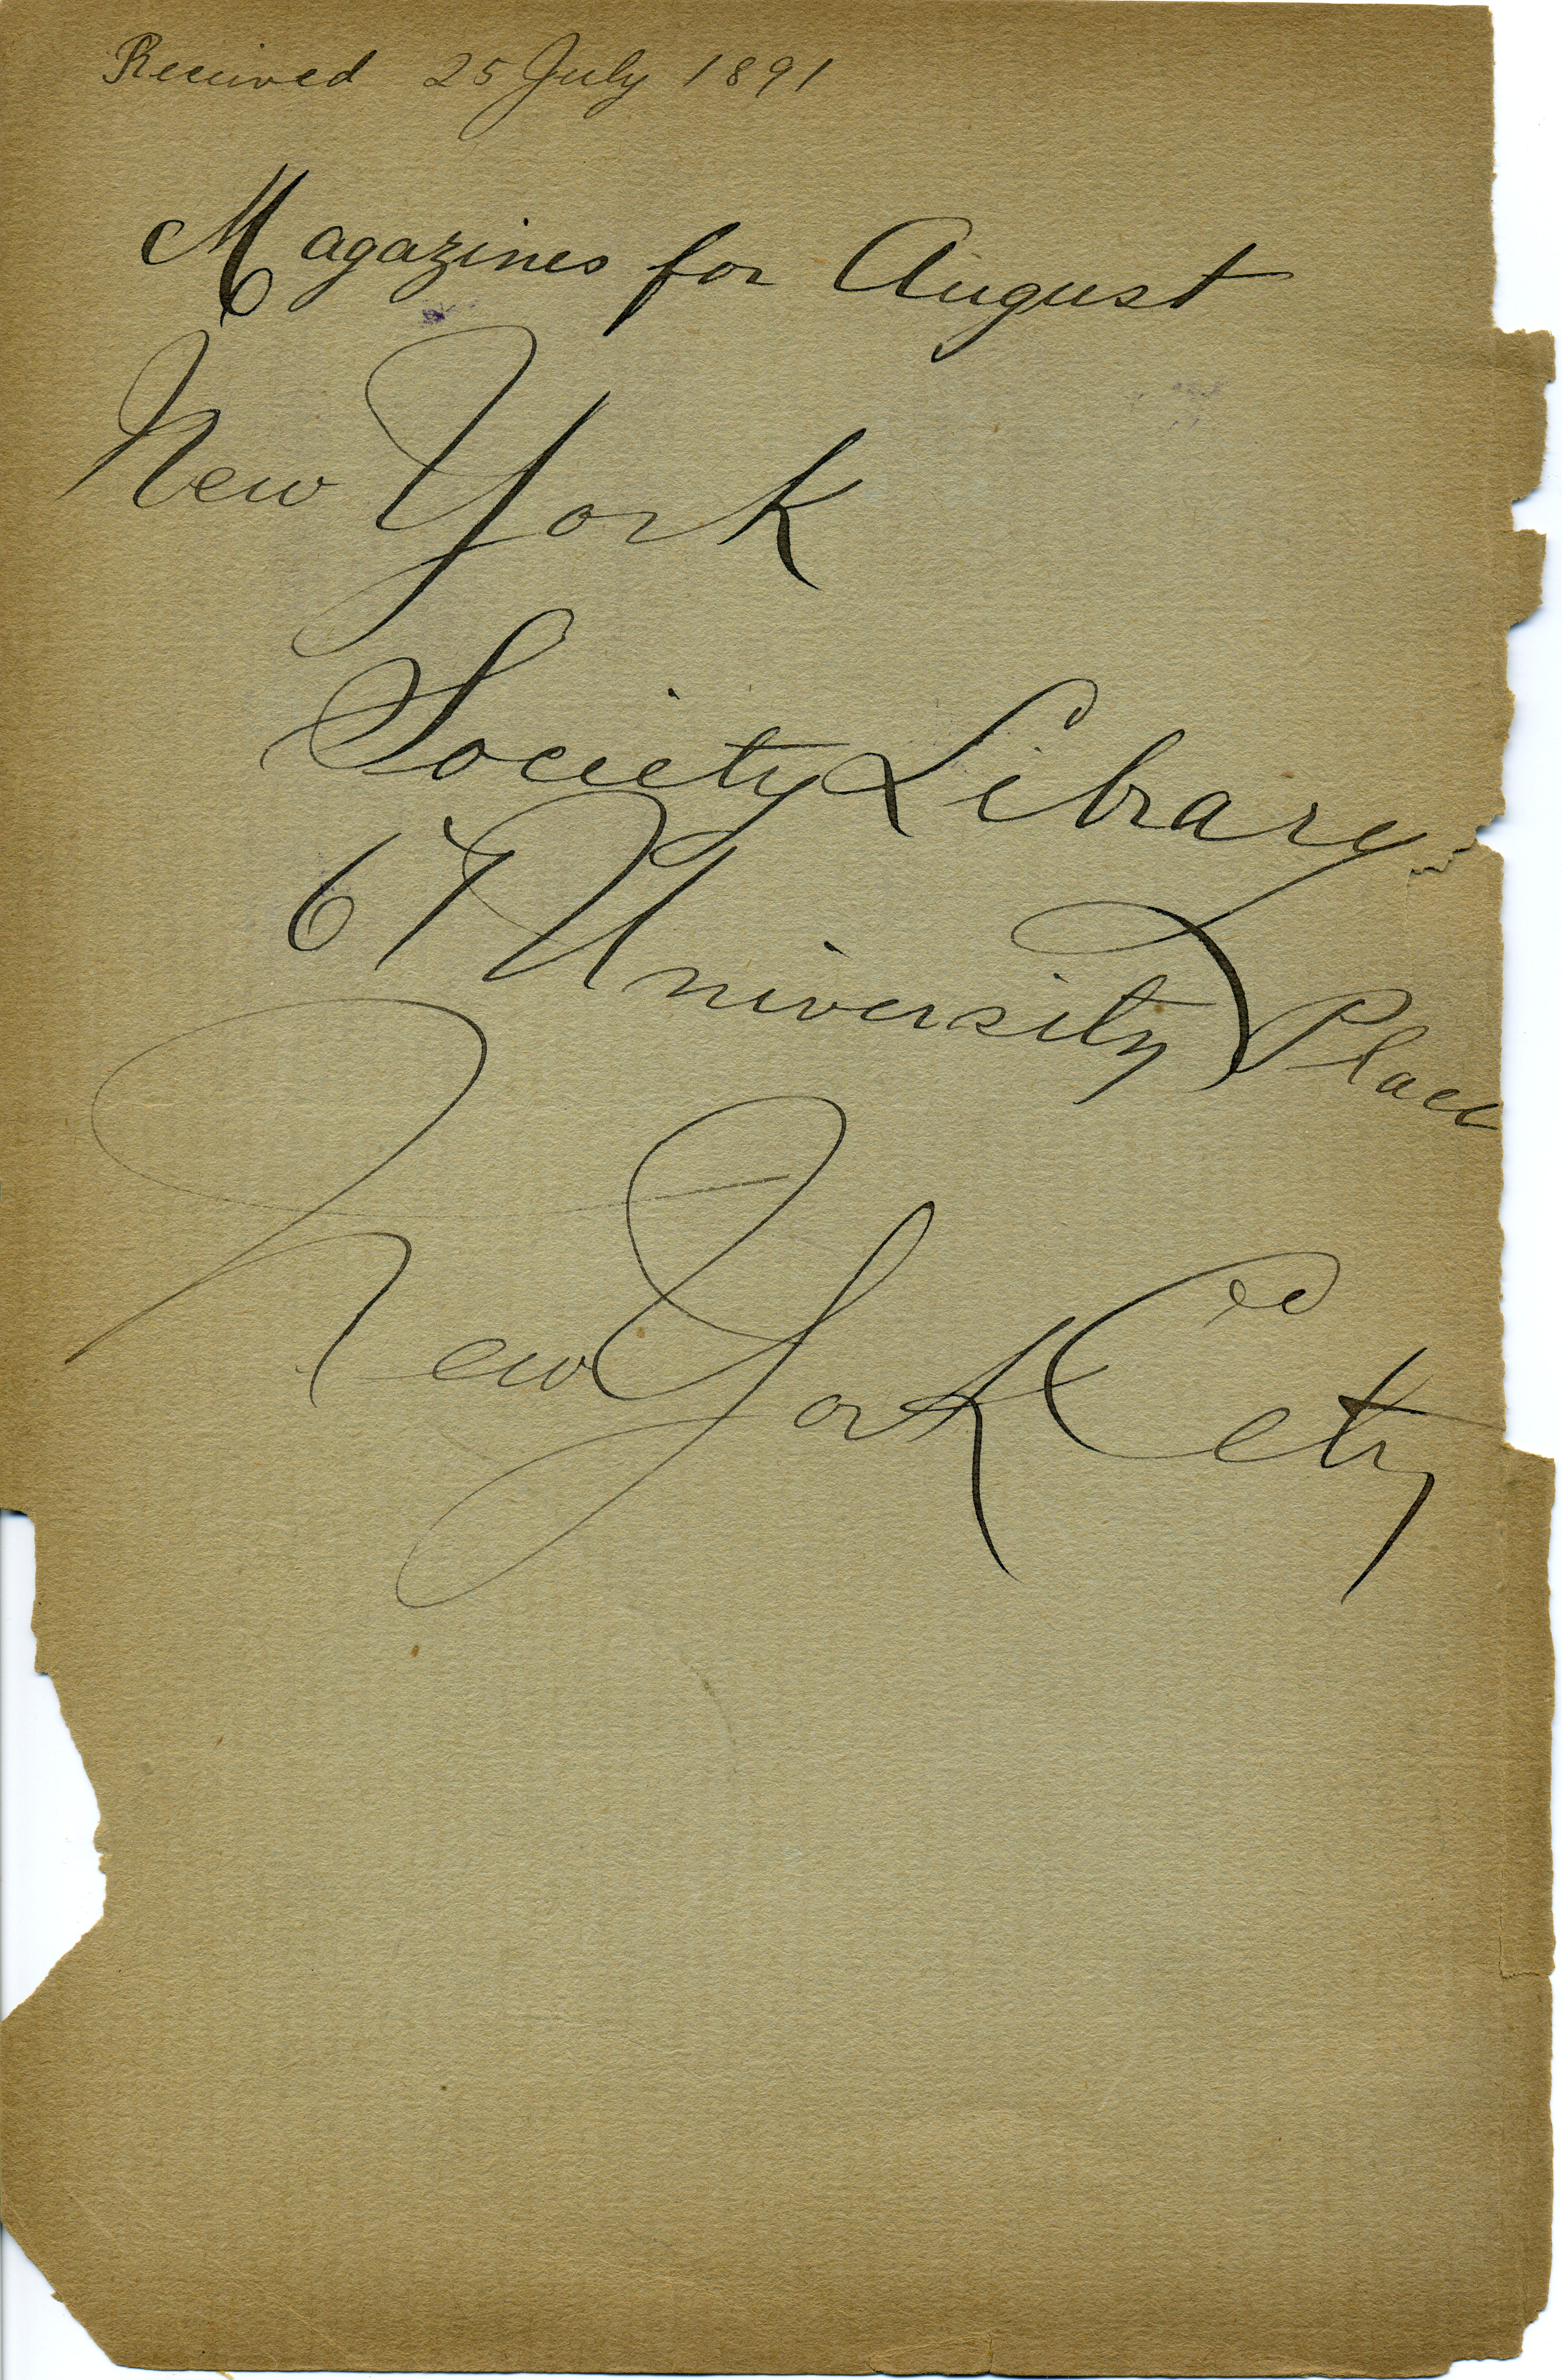 Received 25 July 1891
Magazines for August
New York
Society Library
67 University Place
New York City